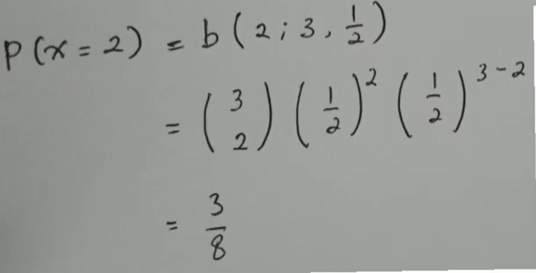 P(x = 2) = b(2; 3, 1/2)
= (3 2) (1/2)^2 (1/2)^3-2
= 3/8